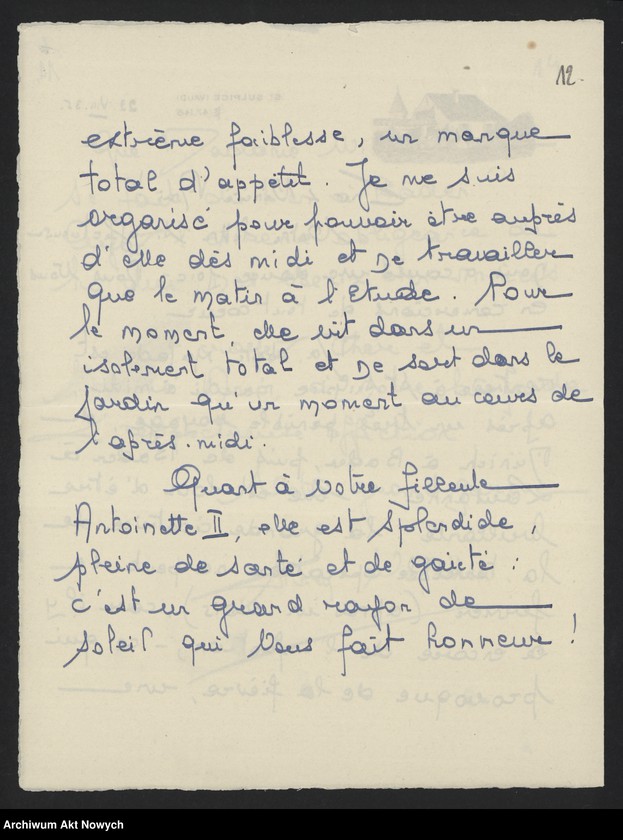 12.
extrême faiblesse, un manque
total d'appétit. Je me suis
organisé pour pouvoir être auprès
d'elle dès midi et ne travailler
que le matin à l'Etude. Pour
le moment, elle vit dans un
isolement total et ne sort dans le
jardin qu'un moment au cours de
l'après-midi.
Quant à votre filleule
Antoinette II, elle est splendide
pleine de santé et de gaieté :
c'est un grand rayon de
soleil qui Vous fait honneur !
Archiwum Akt Nowych